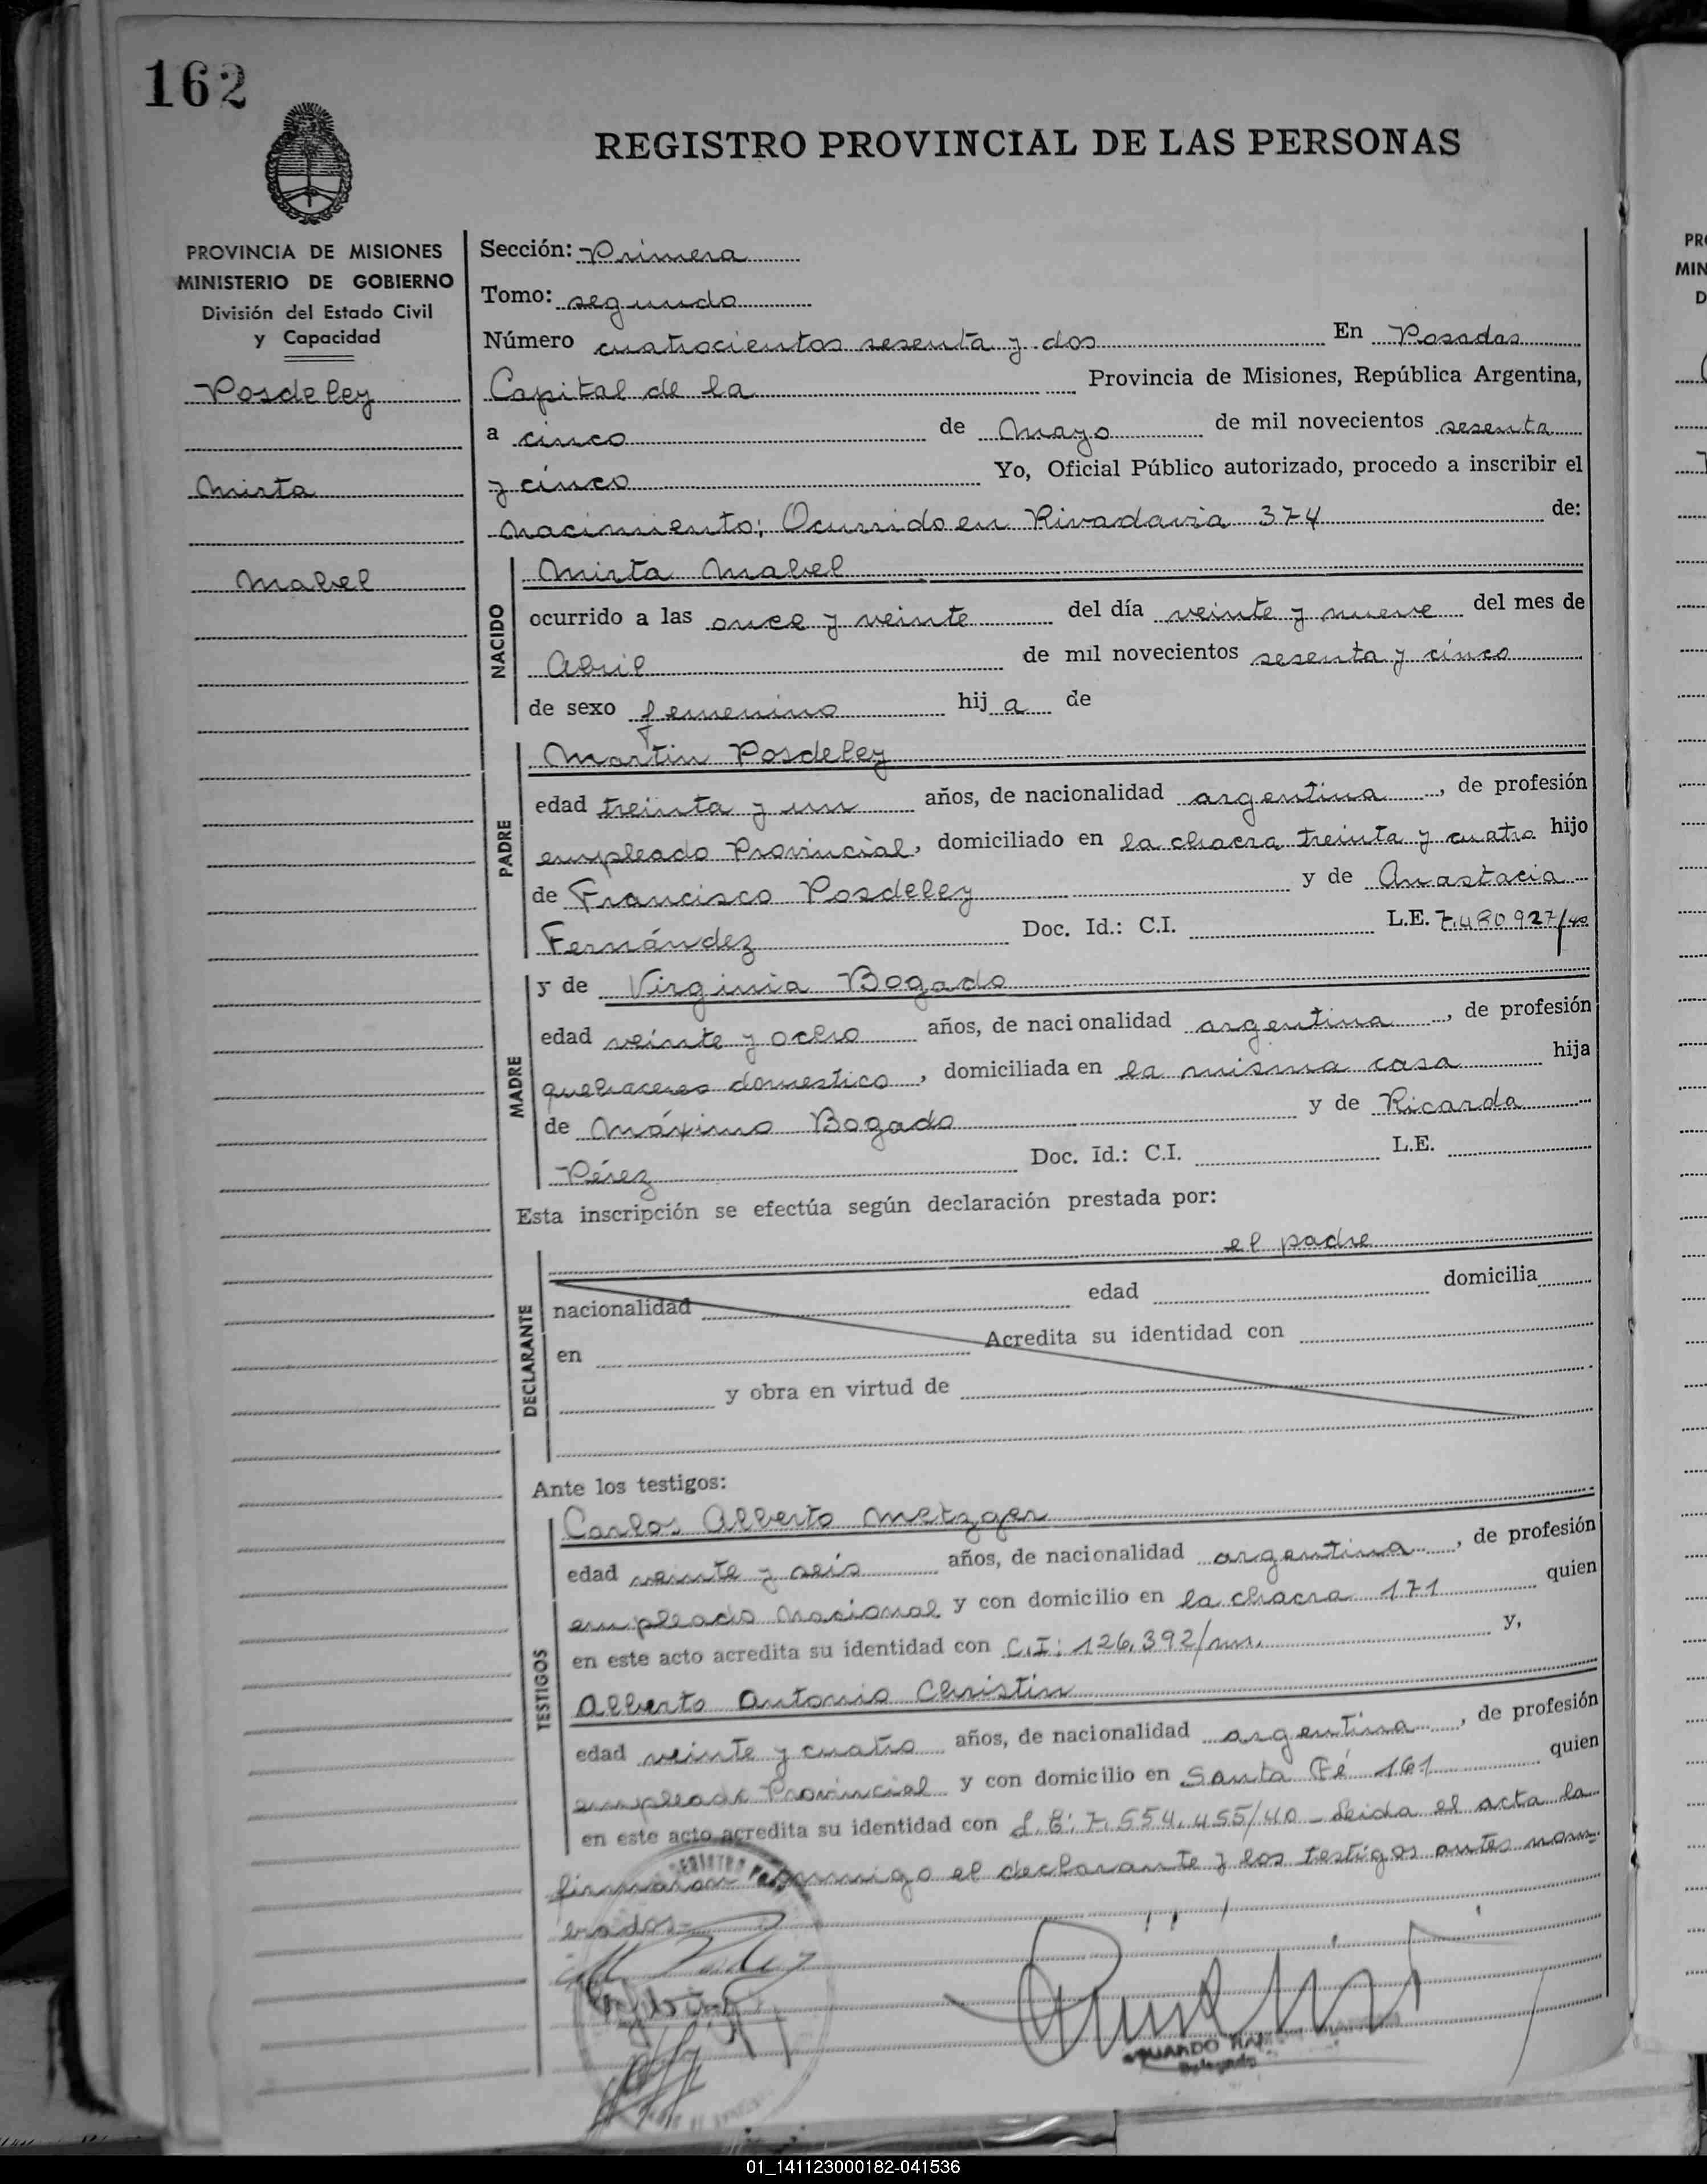 162
REGISTRO PROVINCIAL DE LAS PERSONAS
PROVINCIA DE MISIONES
MINISTERIO DE GOBIERNO
División del Estado Civil
y Capacidad
Posdeley
Mirta
Mabel
Sección: Primera
Tomo: segundo
Número cuatrocientos sesenta y dos En Posadas
Capital de la Provincia de Misiones, República Argentina,
a cinco de Mayo de mil novecientos sesenta
y cinco Yo, Oficial Público autorizado, procedo a inscribir el
nacimiento; Ocurrido en Rivadavia 374 de:
NACIDO
Mirta Mabel
ocurrido a las once y veinte del día veinte y nueve del mes de
Abril de mil novecientos sesenta y cinco
de sexo femenino hij a de
PADRE
Martin Posdeley
edad treinta y un años, de nacionalidad argentina, de profesión
empleado Provincial, domiciliado en la chacra treinta y cuatro hijo
de Francisco Posdeley y de Anastacia
Fernández Doc. Id.: C.I. L.E. 7.480.927/40
MADRE
y de Virginia Bogado
edad veinte y ocho años, de nacionalidad argentina, de profesión
quehaceres domestico, domiciliada en la misma casa hija
de Máximo Bogado y de Ricarda
Pérez Doc. Id.: C.I. L.E.
Esta inscripción se efectúa según declaración prestada por:
DECLARANTE
el padre
nacionalidad edad domicilia
en Acredita su identidad con
y obra en virtud de
Ante los testigos:
TESTIGOS
Carlos Alberto Metzger
edad veinte y seis años, de nacionalidad argentina, de profesión
empleado Nacional y con domicilio en la chacra 171 quien
en este acto acredita su identidad con C.I: 126.392/ms. y,
Alberto Antonio Christin
edad veinte y cuatro años, de nacionalidad argentina, de profesión
empleado Provincial y con domicilio en Santa Fé 161 quien
en este acto acredita su identidad con L.E: 7.554.455/40 - Leida el acta la
firmaron conmigo el declarante y los testigos antes nom-
brados-
Delegado
01_141123000182-041536